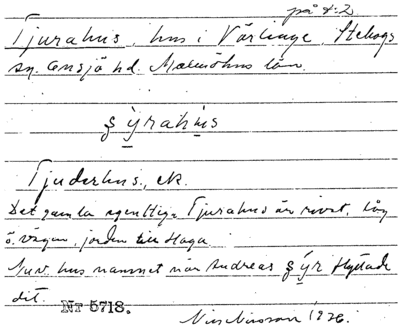 på t. 2
Tjurahus, hus i Värlinge, Stehags
sn. Onsjö hd. Malmöhus län.
ʂýrahùs
Tjuderhus, ek.
Det gamla egentliga Tjurahus är rivet, låg
ö. vägen, jorden till Haga.
Nuv. hus namnet när Andreas ʂýr flyttade
dit.
Nr 5718.
Nils Nilsson 1926.